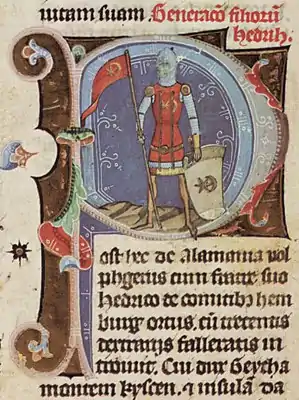 iutam suam. Generacō filiorū
hedrih.
Post hec de Alamania vol
phgerius cum fratre suo
hedrico de comitibꝰ hem
burg ortus, cū trecentis
dextrariis falleratis in
troiuit. Cui dux Geycha
montem kyscen. ⁊ insulā da